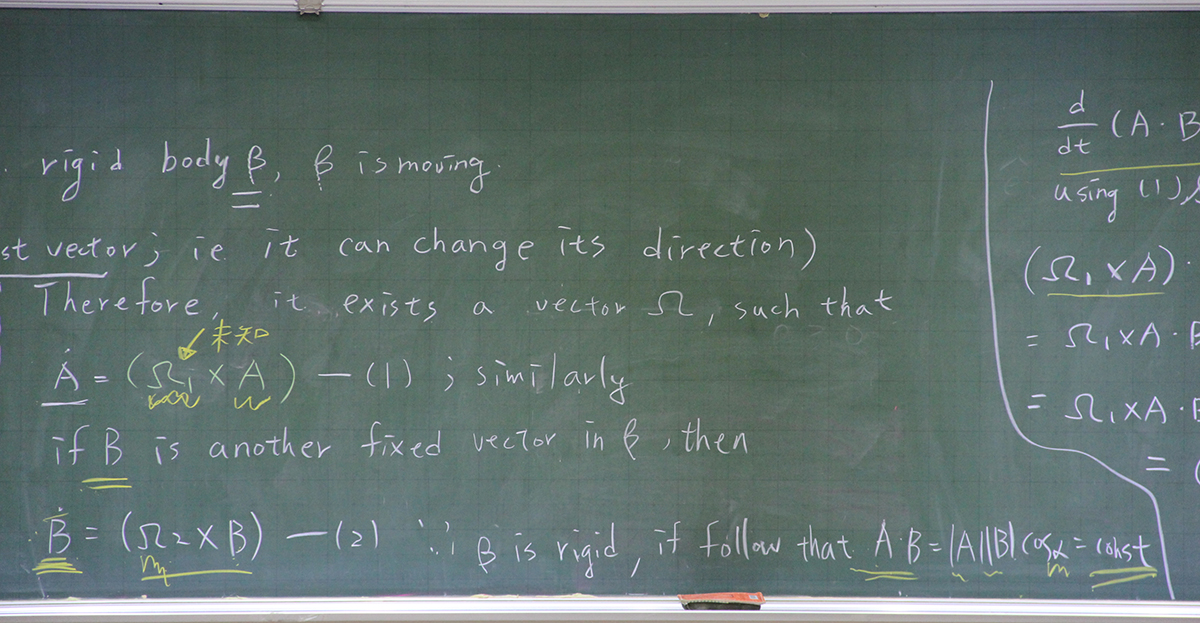 rigid body β, β is moving.
st vector; ie it can change its direction)
Therefore, it exists a vector Ω, such that
未知
Ȧ = (Ω₁ × A) — (1) ; similarly
if B is another fixed vector in β, then
Ḃ = (Ω₂ × B) — (2) ∵ β is rigid, it follow that A·B = |A||B| cosα = const
d/dt (A · B
using (1),
(Ω₁ × A) ·
= Ω₁ × A · B
= Ω₁ × A · B
=